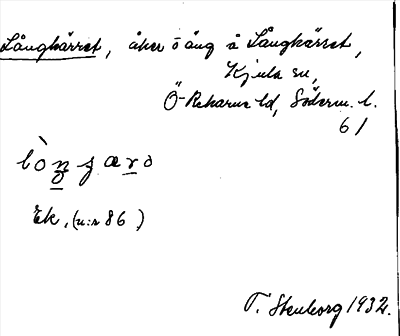 Långkärret, åker o äng å Långkärret,
Kjula sn,
Ö-Rekarne hd, Söderm. l.
61
Ek, (u:r 86.)
T. Stenborg 1932.